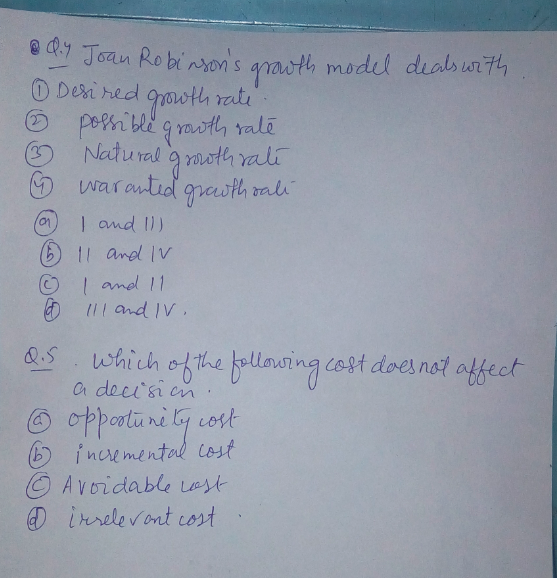 Q.4 Joan Robinson's growth model deals with.
① Desired growth rate.
② possible growth rate
③ Natural growth rate
④ waranted growth rate
ⓐ I and III
ⓑ II and IV
ⓒ I and II
ⓓ III and IV.
Q.5. Which of the following cost does not affect
a decision.
ⓐ opportunity cost
ⓑ incremental cost
ⓒ Avoidable cost
ⓓ irrelevant cost.